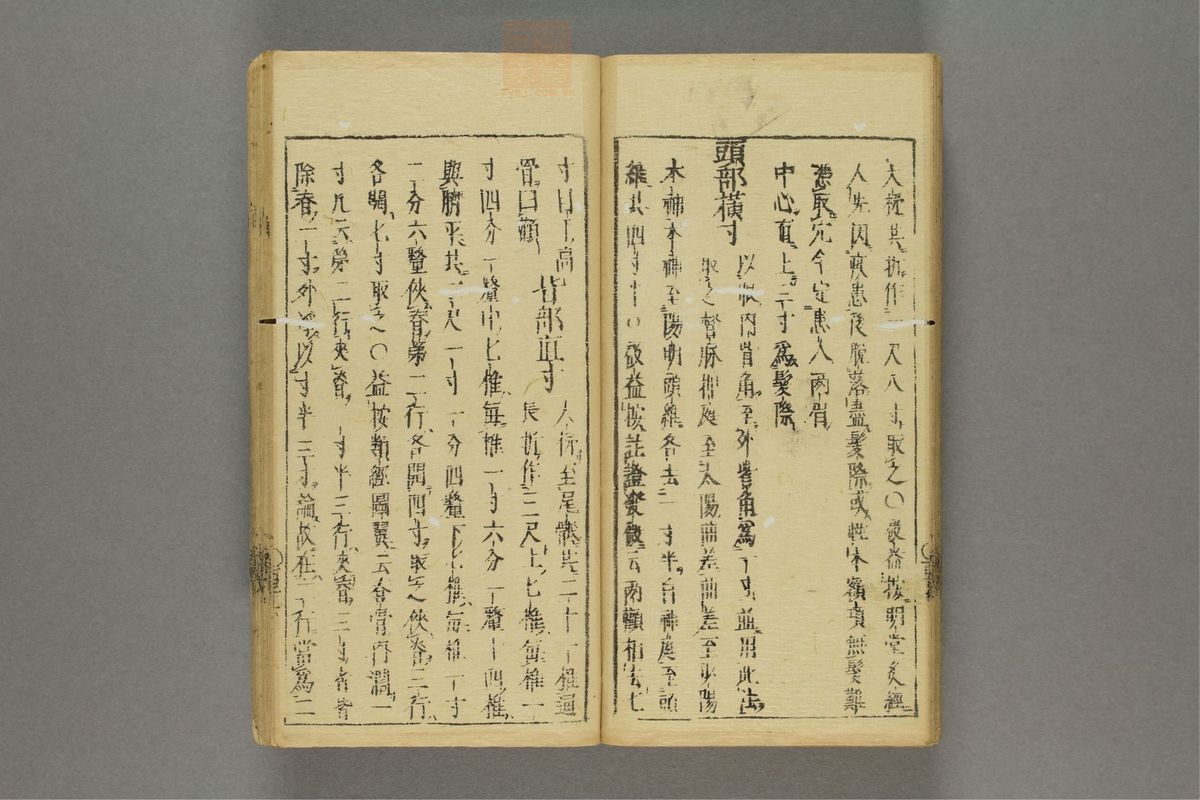 大椎共折作一尺八寸取之〇啟益按明堂灸經
人先因疾患後脫落盡髮際或性本額項無髮難
憑取穴今定患人兩眉
中心直上三寸為髮際
頭部橫寸 以眼內眥角至外眥角為一寸並用此法
取之督脉神庭至太陽曲差曲差至少陽
本神本神至陽明頭維各去一寸半自神庭至頭
維共四寸半〇啟益按註證發微云兩顴相去七
寸曰下高
骨曰顴 背部直寸 大椎至尾骶共二十一椎通
長折作三尺上七椎每椎一
寸四分一釐中七椎每椎一寸六分一釐十四椎
與臍平共一尺一寸一分四釐下七椎每椎一寸
二分六釐俠脊第二行各開四寸取之俠脊三行
各開七寸取之〇益按類經圖翼云脊骨內濶一
寸凡云第二行夾脊一寸半三行夾脊三寸者皆
除脊一寸外淨以寸半三寸論故在二行當為二